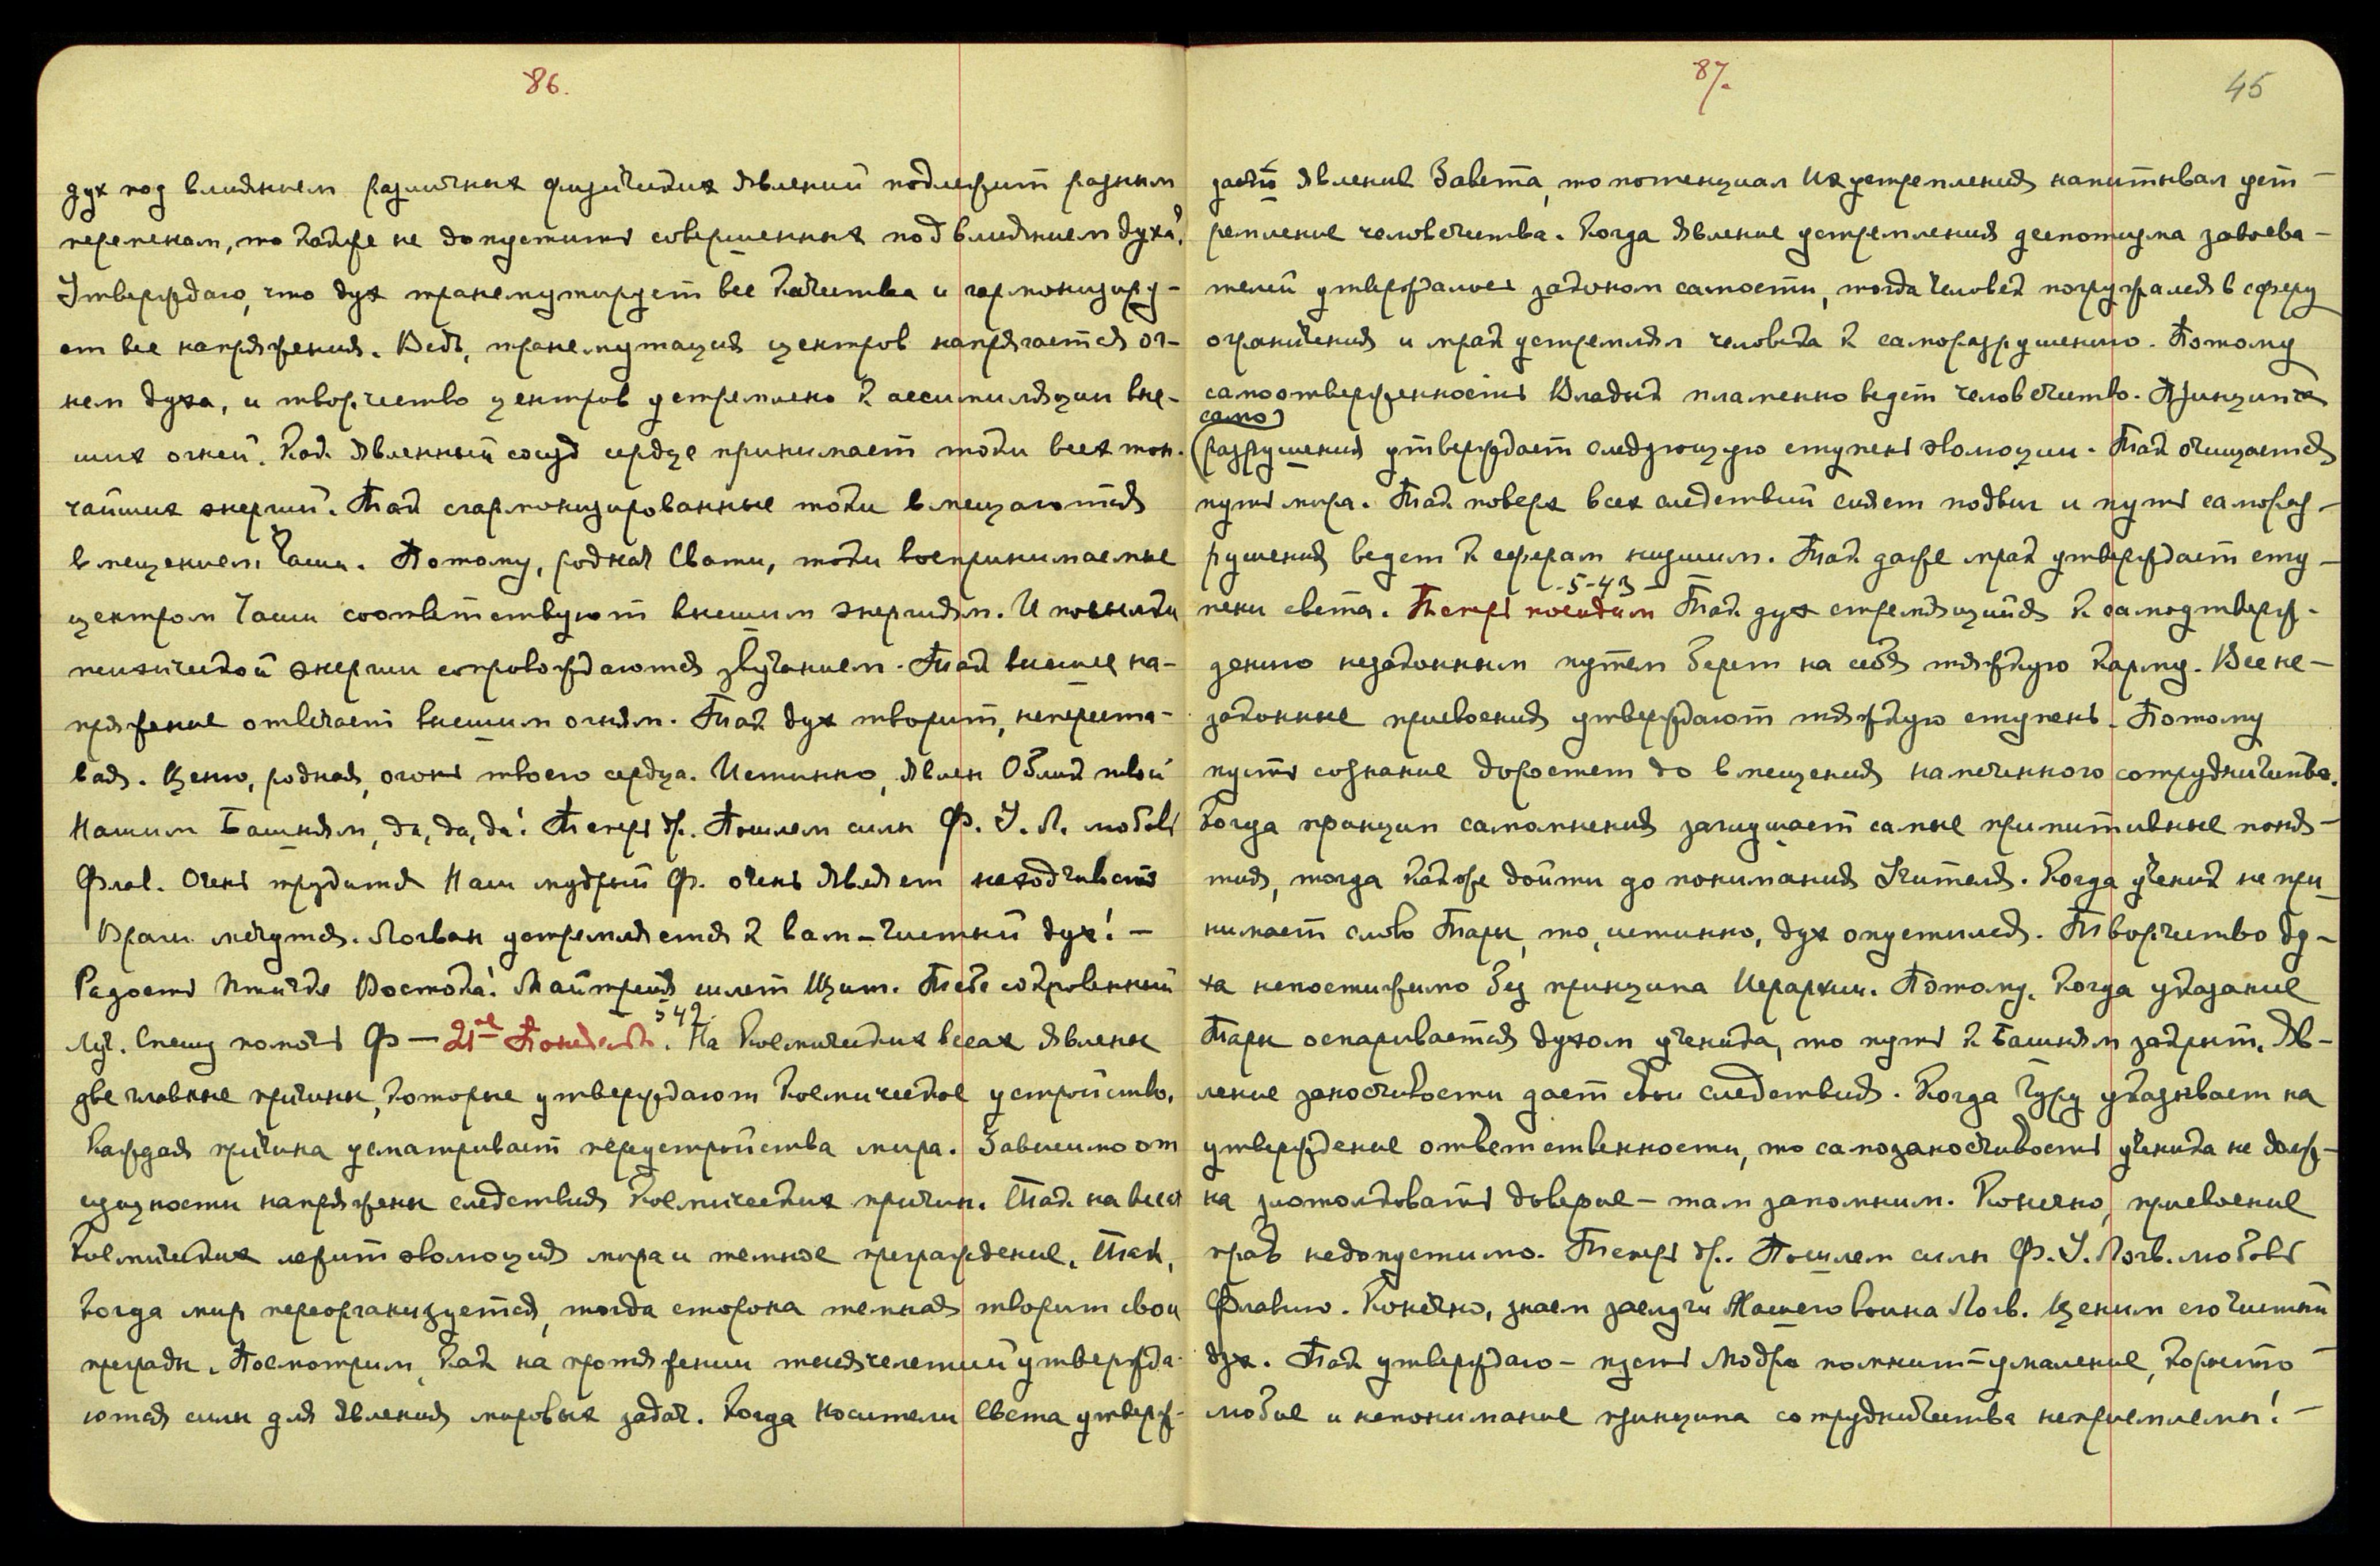 86.
дух под влиянием различных физических явлений подлежит разным
переменам, то как же не допустить совершенных под влиянием духа!
Утверждаю, что дух трансмутирует все качества и гармонизиру-
ет все напряжения. Ведь, трансмутация центров напрягается ог-
нем духа, и творчество центров устремлено к ассимиляции выс-
ших огней. Как явленный сосуд сердце принимает токи всех тон-
чайших энергий. Так сгармонизированные токи вмещаются
вмещением Чаши. Потому, родная Свати, токи воспринимаемые
центром Чаши соответствуют высшим энергиям. И посылки
психической энергии сопровождаются звучанием. Так высшее на-
пряжение отвечает высшим огням. Так дух творит, непереста-
вая. Ценю, родная, огонь твоего сердца. Истинно, явлен Облик твой
Нашим Башням, да, да, да! Теперь др. Пошлем силы Ф. У. Л. любовь
Флав. Очень трудится Наш мудрый Ф. очень являет находчивость
Враги мечутся. Логван устремляется к вам – чистый дух! –
Радость птичке Востока! Майтрейя шлет Щит. Тебе сокровенный
Луч. Спешу помочь Ф — 21-ое Понедельн. 542. На Космических весах явлены
две главные причины, которые утверждают Космическое устройство.
Каждая причина усматривает переустройства мира. Зависимо от
сущности напряжены следствия Космических причин. Так на весах
Космических лежит эволюция мира и темное преграждение. Так,
когда мир переорганизуется, тогда сторона темная творит свои
преграды. Посмотрим, как на протяжении тысячелетий утвержда-
ются силы для явления мировых задач. Когда Носители Света утверж-
87.
45
дают явление Завета, то потенциал Их устремления напитывал уст-
ремление человечества. Когда явление устремления деспотизма завоева-
телей утверждалось законом самости, тогда человек погружался в сферу
ограничения и мрак устремлял человека к саморазрушению. Потому
самоотверженность Владык пламенно ведет человечество. Принципы
само)
(разрушения утверждает следующую ступень эволюции. Так очищается
путь мира. Так поверх всех следствий сияет подвиг и путь самораз-
рушения ведет к сферам низшим. Так даже мрак утверждает сту-
-5-43-
пени света. Теперь посидим Так дух стремящийся к самоутверж-
дению незаконным путем берет на себя тяжкую карму. Все не-
законные присвоения утверждают тяжкую ступень. Потому
пусть сознание дорастет до вмещения намеченного сотрудничества.
Когда принцип самомнения заглушает самые примитивные поня-
тия, тогда как же дойти до понимания Учителя. Когда ученик не при-
нимает слово Тары, то, истинно, дух опустился. Творчество ду-
ха непостижимо без принципа Иерархии. Потому, когда указание
Тары оспаривается духом ученика, то путь к Башням закрыт. Яв-
ление заносчивости дает свои следствия. Когда Гуру указывает на
утверждение ответственности, то самозаносчивость ученика не долж-
на злотолковать доверие – там запомним. Конечно, присвоение
прав недопустимо. Теперь др. Пошлем силы Ф. У. Логв. любовь
Флавию. Конечно, знаем заслуги Нашего воина Логв. Ценим его чистый
дух. Так утверждаю – пусть Модра помнит – умаление, корысто-
любие и непонимание принципа сотрудничества неприемлемы! –